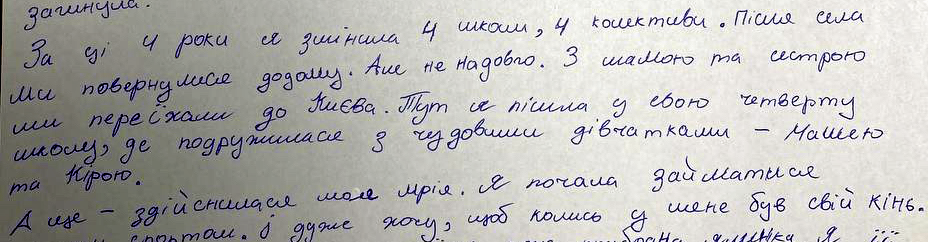 загинула.
За ці 4 роки я змінила 4 школи, 4 колективи. Після села
ми повернулися додому. Але не надовго. З мамою та сестрою
ми переїхали до Києва. Тут я пішла у свою четверту
школу, де подружилася з чудовими дівчатками – Машею
та Кірою.
А ще – здійснилася моя мрія. Я почала займатися
спортом. І дуже хочу, щоб колись у мене був свій кінь.